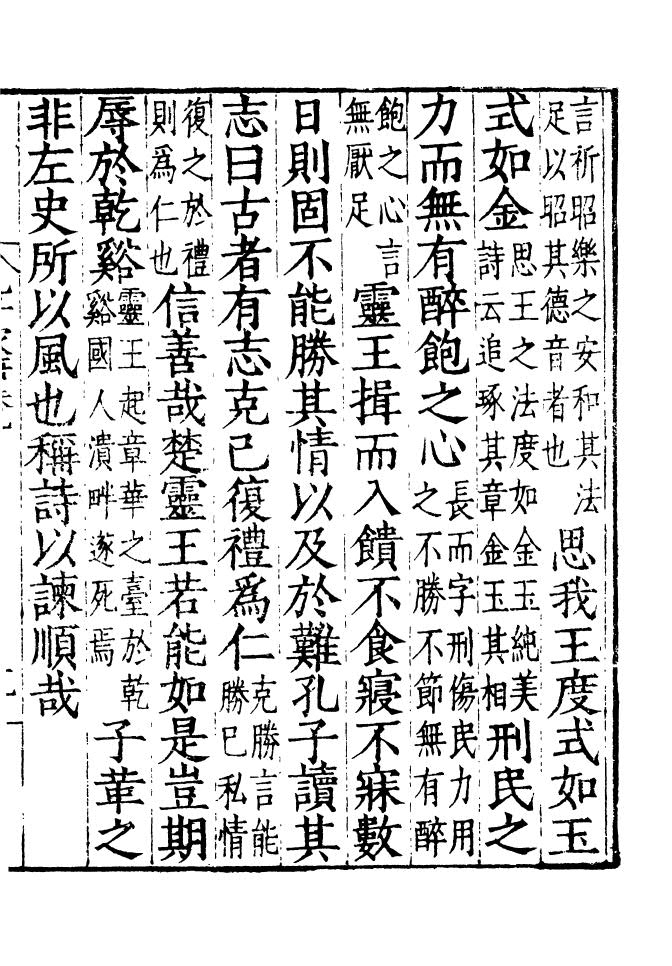 言祈昭樂之安和其法足以昭其德音者也思我王度式如玉
式如金思王之法度如金玉純美詩云追琢其章金玉其相刑民之
力而無有醉飽之心長而字刑傷民力用之不勝不節無有醉
飽之心言無厭足靈王揖而入饋不食寢不寐數
日則固不能勝其情以及於難孔子讀其
志曰古者有志克已復禮爲仁克勝言能勝已私情
復之於禮則爲仁也信善哉楚靈王若能如是豈期
辱於乾谿靈王起章華之臺於乾谿國人潰畔遂死焉子革之
非左史所以風也稱詩以諫順哉